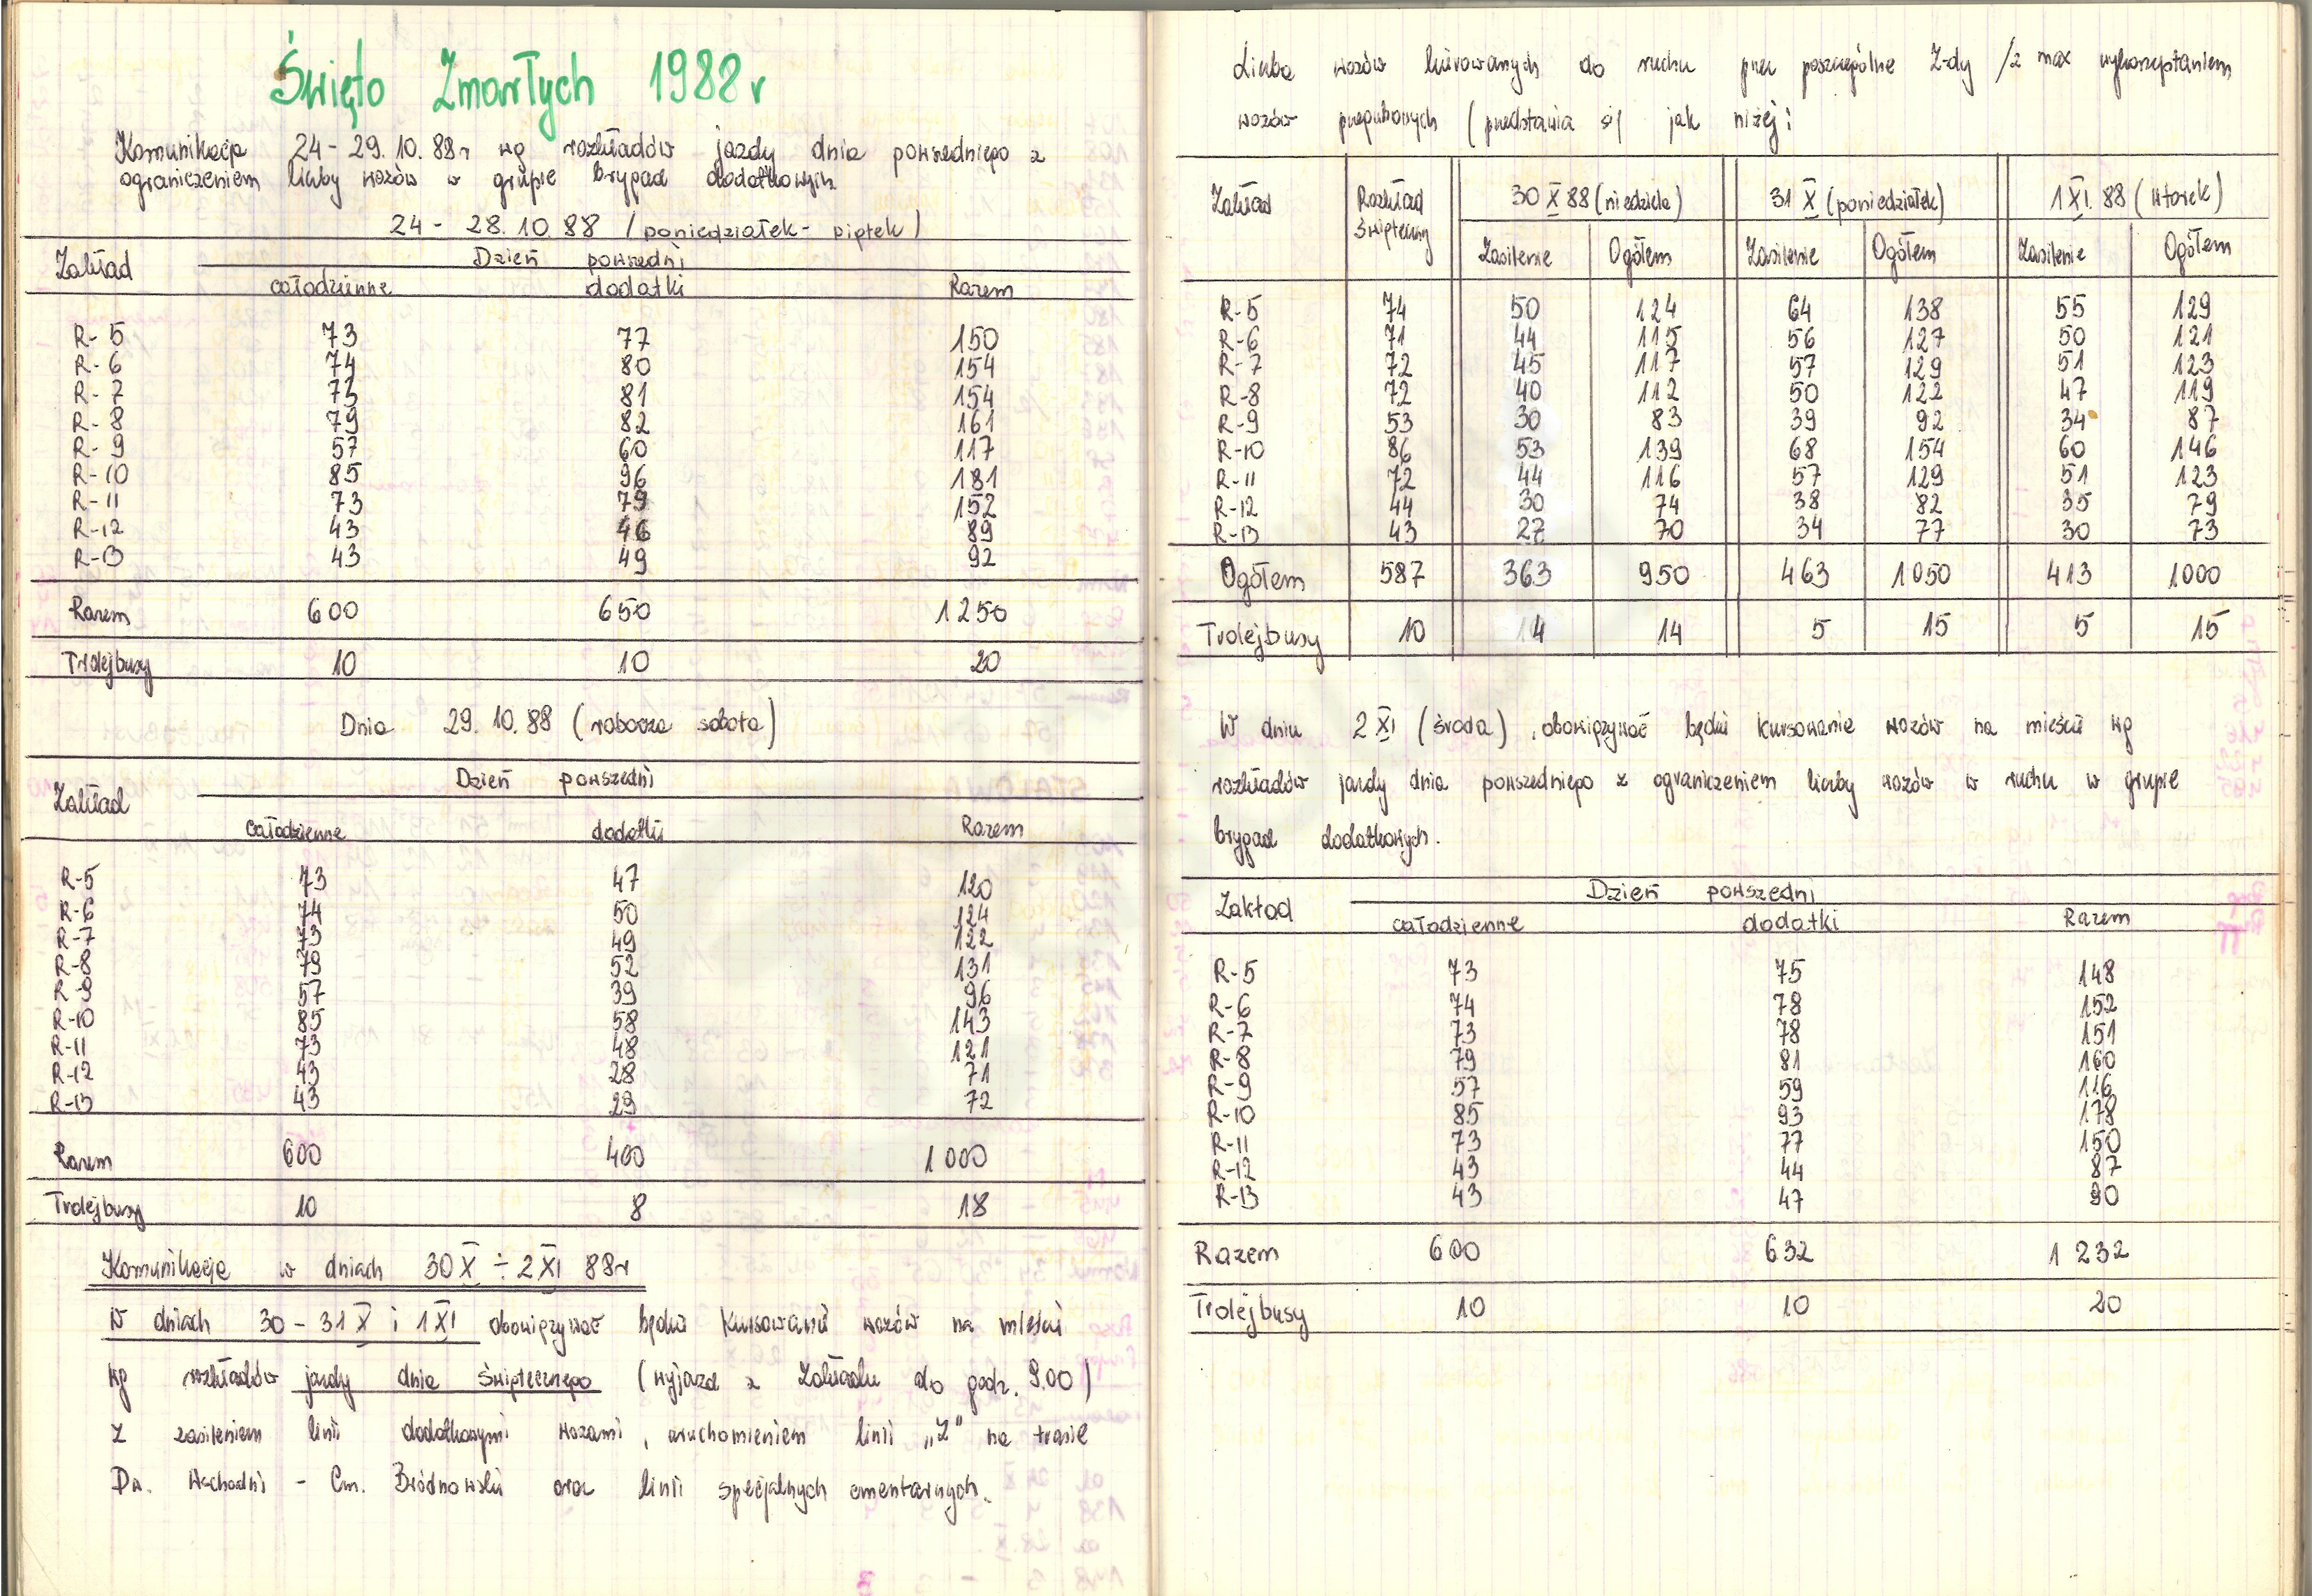 Święto Zmarłych 1988 r
Komunikacja 24 - 29. 10. 88 r wg rozkładów jazdy dnia powszedniego z
ograniczeniem liczby wozów w grupie brygad dodatkowych
24 - 28. 10. 88 / poniedziałek - piątek /
Zakład Dzień powszedni
całodzienne dodatki Razem
R-5 73 77 150
R-6 74 80 154
R-7 73 81 154
R-8 79 82 161
R-9 57 60 117
R-10 85 96 181
R-11 73 79 152
R-12 43 46 89
R-13 43 49 92
Razem 600 650 1250
Trolejbusy 10 10 20
Dnia 29. 10. 88 ( robocza sobota )
Zakład Dzień powszedni
całodzienne dodatki Razem
R-5 73 47 120
R-6 74 50 124
R-7 73 49 122
R-8 79 52 131
R-9 57 39 96
R-10 85 58 143
R-11 73 48 121
R-12 43 28 71
R-13 43 29 72
Razem 600 400 1000
Trolejbusy 10 8 18
Komunikacja w dniach 30 X ÷ 2 XI 88 r
W dniach 30 - 31 X i 1 XI obowiązywać będzie kursowanie wozów na mieście
wg rozkładów jazdy dnia świątecznego ( wyjazd z Zakładu do godz. 9.00 )
z zasileniem linii dodatkowymi wozami, uruchomieniem linii „Z" na trasie
Dw. Wschodni - Cm. Bródnowski oraz linii specjalnych cmentarnych.
Liczba wozów kierowanych do ruchu przez poszczególne Z-dy /z max wykorzystaniem
wozów przegubowych ( przedstawia się jak niżej:
Zakład Rozkład świąteczny 30 X 88 (niedziela) 31 X (poniedziałek) 1 XI. 88 ( wtorek )
Zasilenie Ogółem Zasilenie Ogółem Zasilenie Ogółem
R-5 74 50 124 64 138 55 129
R-6 71 44 115 56 127 50 121
R-7 72 45 117 57 129 51 123
R-8 72 40 112 50 122 47 119
R-9 53 30 83 39 92 34 87
R-10 86 53 139 68 154 60 146
R-11 72 44 116 57 129 51 123
R-12 44 30 74 38 82 35 79
R-13 43 27 70 34 77 30 73
Ogółem 587 363 950 463 1050 413 1000
Trolejbusy 10 4 14 5 15 5 15
W dniu 2 XI ( środa ) , obowiązywać będzie kursowanie wozów na mieście wg
rozkładów jazdy dnia powszedniego z ograniczeniem liczby wozów w ruchu w grupie
brygad dodatkowych.
Zakład Dzień powszedni
całodzienne dodatki Razem
R-5 73 75 148
R-6 74 78 152
R-7 73 78 151
R-8 79 81 160
R-9 57 59 116
R-10 85 93 178
R-11 73 77 150
R-12 43 44 87
R-13 43 47 90
Razem 600 632 1 232
Trolejbusy 10 10 20